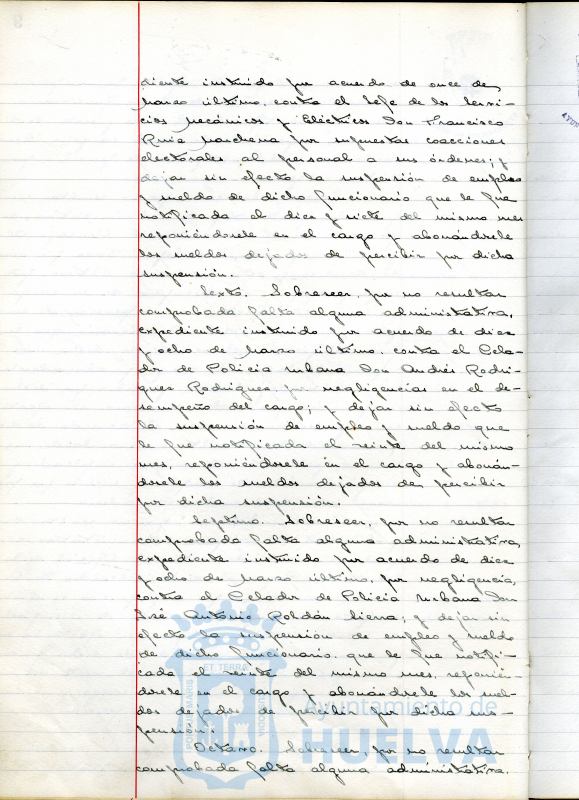 diente instruido por acuerdo de once de
Marzo último, contra el Jefe de los Servi-
cios Mecánicos y Eléctricos Don Francisco
Ruiz Marchena por supuestas coacciones
electorales al personal a sus órdenes; y
dejar sin efecto la suspensión de empleo
y sueldo de dicho funcionario que le fue
notificada el diez y siete del mismo mes
reponiéndosele en el cargo y abonándosele
los sueldos dejados de percibir por dicha
suspensión.
Sexto. Sobreseer, por no resultar
comprobada falta alguna administrativa,
expediente instruido por acuerdo de diez
y ocho de Marzo último, contra el Cela-
dor de Policía Urbana Don Andrés Rodri-
guez Rodriguez, por negligencias en el de-
sempeño del cargo; y dejar sin efecto
la suspensión de empleo y sueldo que
le fue notificada el veinte del mismo
mes, reponiéndosele en el cargo y abonán-
dosele los sueldos dejados de percibir
por dicha suspensión.
Septimo. Sobreseer, por no resultar
comprobada falta alguna administrativa,
expediente instruido por acuerdo de diez
y ocho de Marzo último, por negligencia,
contra el Celador de Policía Urbana Don
José Antonio Roldán Sierra; y dejar sin
efecto la suspensión de empleo y sueldo
de dicho funcionario, que le fue notifi-
cada el veinte del mismo mes, reponién-
dosele en el cargo y abonándosele los suel-
dos dejados de percibir por dicha sus-
pensión.
Octavo. Sobreseer, por no resultar
comprobada falta alguna administrativa,
Ayuntamiento de
HUELVA